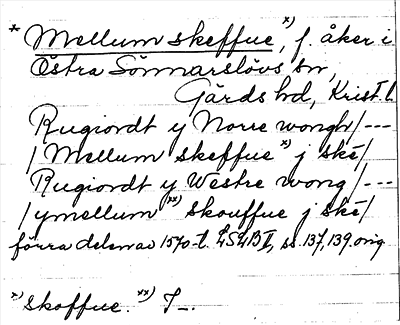 * Mellum skeffue x), f. åker i
Östra Sönnarslövs sn,
Gärds hd, Krist. l.
Rugiordt y Norre wongh/---
/Mellum skeffue x) j skè/
Rugiordt y Westre wong/---
/ymellum xx) skouffue j skè/
förra delen av 1570-t. LSLB II, ss. 137, 139 orig
x) skoffue. xx) I_.